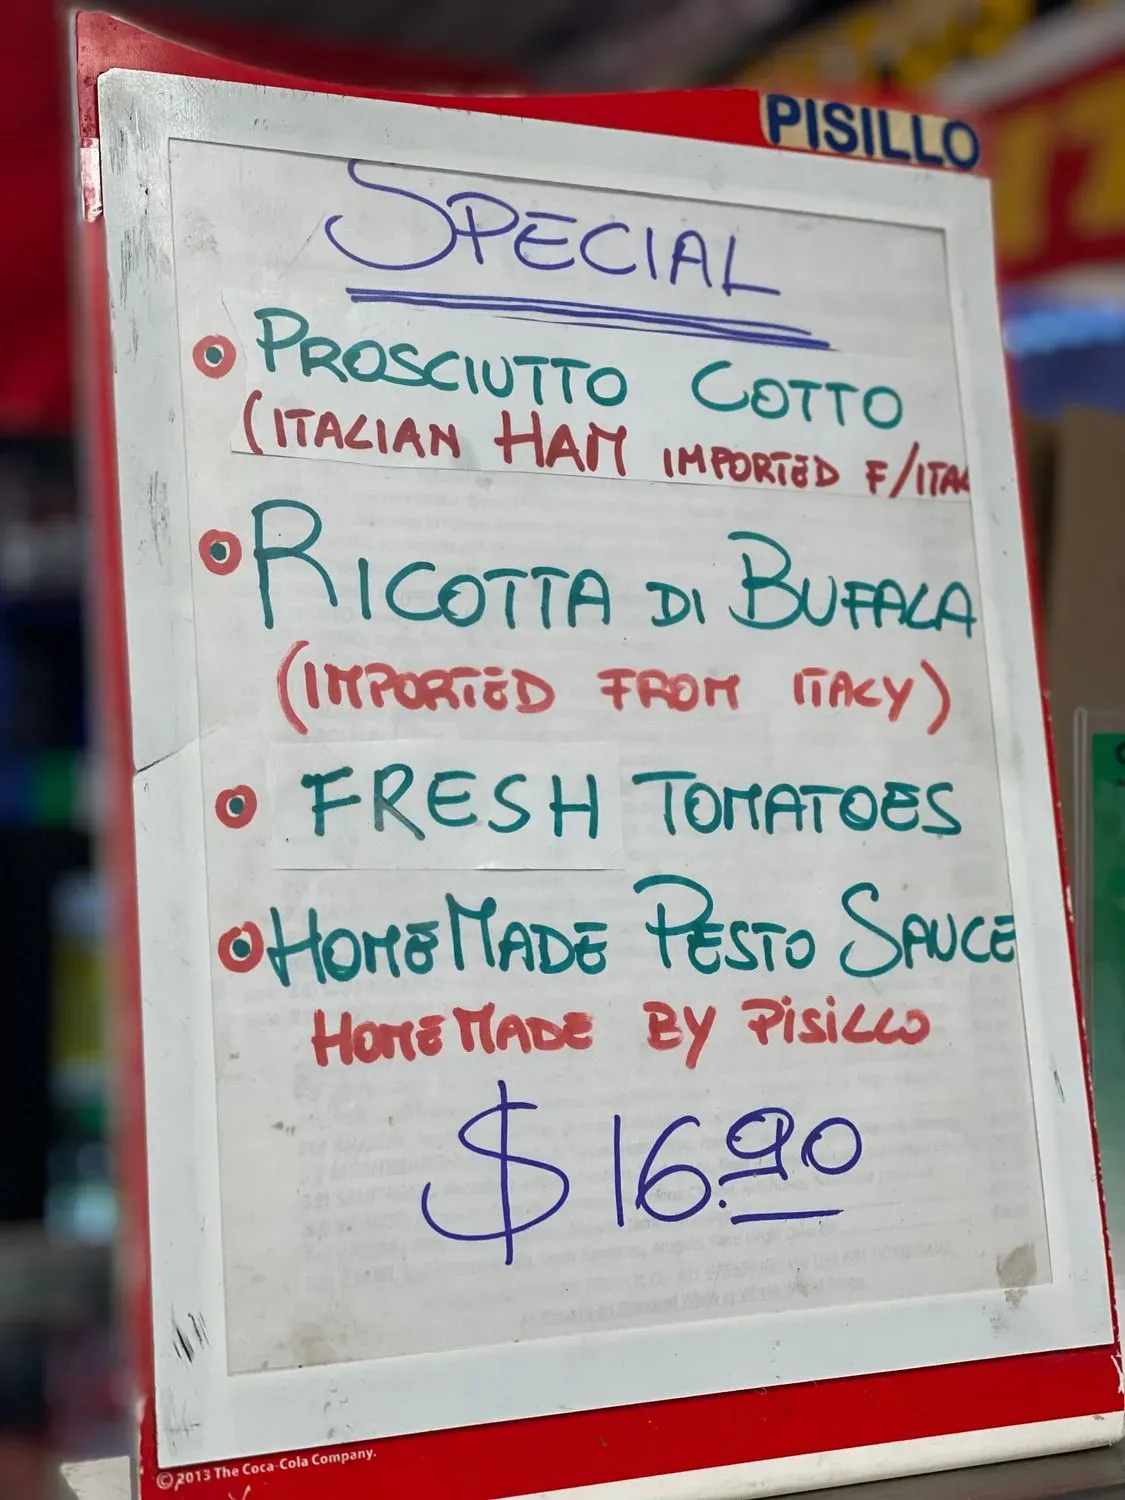 PISILLO
SPECIAL
PROSCIUTTO COTTO
(ITALIAN HAM IMPORTED F/ITAL
RICOTTA DI BUFALA
(IMPORTED FROM ITALY)
FRESH TOMATOES
HOMEMADE PESTO SAUCE
HOMEMADE BY PISILLO
$16.90
©2013 The Coca-Cola Company.